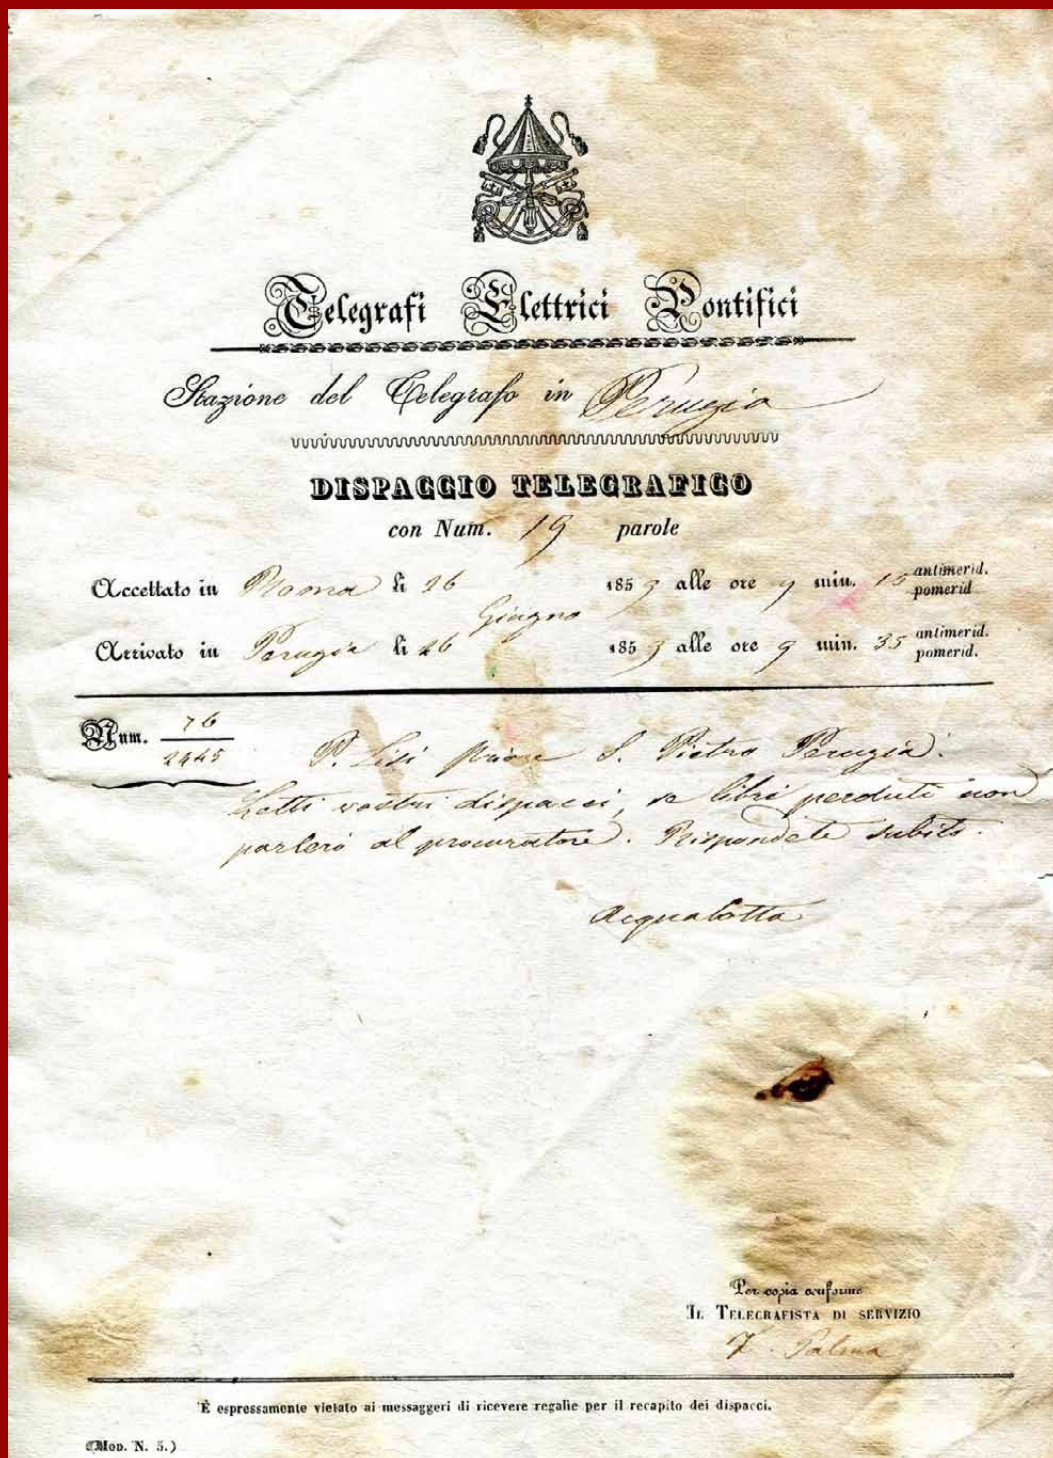 Telegrafi Elettrici Pontifici
Stazione del Telegrafo in Perugia
DISPACCIO TELEGRAFICO
con Num. 19 parole
Accettato in Roma li 26 Giugno 1859 alle ore 9 min. 15 antimerid. pomerid.
Arrivato in Perugia li 26 1859 alle ore 9 min. 35 antimerid. pomerid.
Num. 76
2445
P. Lisi Priore S. Pietro Perugia.
Letti vostri dispacci, se libri perduti non
parlerò al procuratore. Rispondete subito.
Acquabotta
Per copia conforme
IL TELEGRAFISTA DI SERVIZIO
Palma
È espressamente vietato ai messaggeri di ricevere regalie per il recapito dei dispacci.
(MOD. N. 5.)